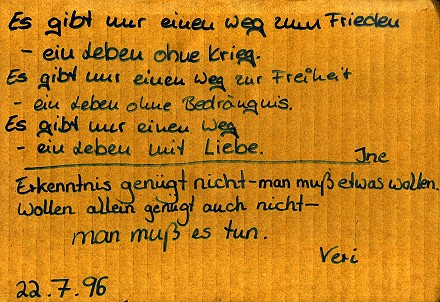 Es gibt nur einen Weg zum Frieden
- ein Leben ohne Krieg.
Es gibt nur einen Weg zur Freiheit
- ein Leben ohne Bedrängnis.
Es gibt nur einen Weg
- ein Leben mit Liebe.
Ine
Erkenntnis genügt nicht - man muß etwas wollen.
Wollen allein genügt auch nicht -
man muß es tun.
Veri
22.7.96